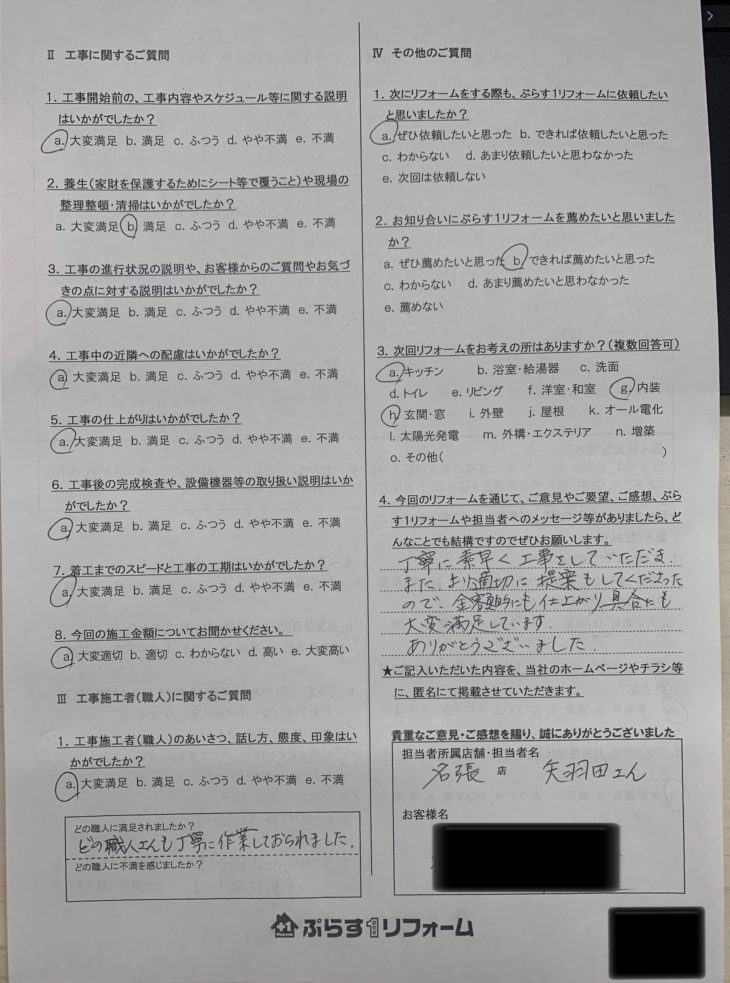 Ⅱ 工事に関するご質問
1. 工事開始前の、工事内容やスケジュール等に関する説明
はいかがでしたか?
a. 大変満足 b. 満足 c. ふつう d. やや不満 e. 不満
2. 養生(家財を保護するためにシート等で覆うこと)や現場の
整理整頓・清掃はいかがでしたか?
a. 大変満足 b. 満足 c. ふつう d. やや不満 e. 不満
3. 工事の進行状況の説明や、お客様からのご質問やお気づ
きの点に対する説明はいかがでしたか?
a. 大変満足 b. 満足 c. ふつう d. やや不満 e. 不満
4. 工事中の近隣への配慮はいかがでしたか?
a. 大変満足 b. 満足 c. ふつう d. やや不満 e. 不満
5. 工事の仕上がりはいかがでしたか?
a. 大変満足 b. 満足 c. ふつう d. やや不満 e. 不満
6. 工事後の完成検査や、設備機器等の取り扱い説明はいか
がでしたか?
a. 大変満足 b. 満足 c. ふつう d. やや不満 e. 不満
7. 着工までのスピードと工事の工期はいかがでしたか?
a. 大変満足 b. 満足 c. ふつう d. やや不満 e. 不満
8. 今回の施工金額についてお聞かせください。
a. 大変適切 b. 適切 c. わからない d. 高い e. 大変高い
Ⅲ 工事施工者(職人)に関するご質問
1. 工事施工者(職人)のあいさつ、話し方、態度、印象はい
かがでしたか?
a. 大変満足 b. 満足 c. ふつう d. やや不満 e. 不満
どの職人に満足されましたか?
どの職人さんも丁寧に作業しておられました。
どの職人に不満を感じましたか?
Ⅳ その他のご質問
1. 次にリフォームをする際も、ぷらす1リフォームに依頼したい
と思いましたか?
a. ぜひ依頼したいと思った b. できれば依頼したいと思った
c. わからない d. あまり依頼したいと思わなかった
e. 次回は依頼しない
2. お知り合いにぷらす1リフォームを薦めたいと思いました
か?
a. ぜひ薦めたいと思った b. できれば薦めたいと思った
c. わからない d. あまり薦めたいと思わなかった
e. 薦めない
3. 次回リフォームをお考えの所はありますか?(複数回答可)
a. キッチン b. 浴室・給湯器 c. 洗面
d. トイレ e. リビング f. 洋室・和室 g. 内装
h. 玄関・窓 i. 外壁 j. 屋根 k. オール電化
l. 太陽光発電 m. 外構・エクステリア n. 増築
o. その他( )
4. 今回のリフォームを通じて、ご意見やご要望、ご感想、ぷら
す1リフォームや担当者へのメッセージ等がありましたら、ど
んなことでも結構ですのでぜひお願いします。
丁寧に素早く工事をしていただき
また、より適切に提案もしてくださった
ので、金額的にも仕上がり具合にも
大変満足しています。
ありがとうございました。
★ご記入いただいた内容を、当社のホームページやチラシ等
に、匿名にて掲載させていただきます。
貴重なご意見・ご感想を賜り、誠にありがとうございました
担当者所属店舗・担当者名
名張 店 矢羽田さん
お客様名
+1 ぷらす1リフォーム